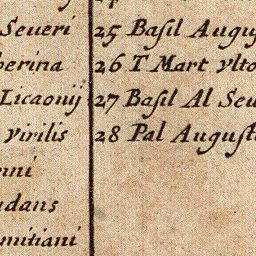 Severi
Licaonij
virilis
mitiani
25 Basil Augu
26 T Mart vlto
27 Basil Al Sev
28 Pal August